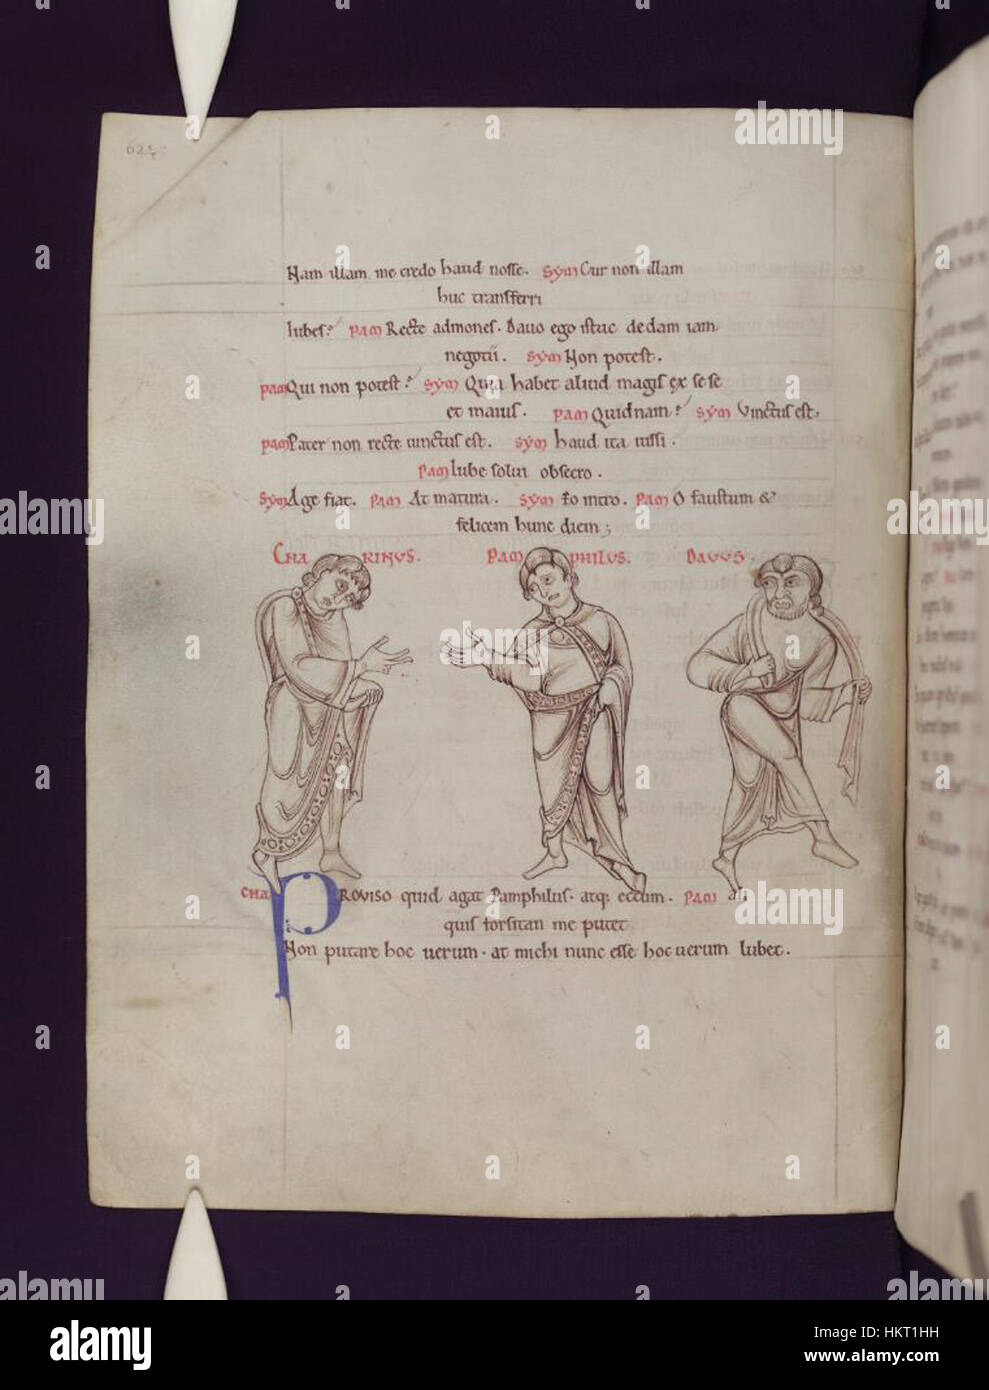 Nam illam me credo haud nosse. sym Cur non illam
huc transferri
Iubes? pam Recte admones. Dauo ego istuc dedam iam
negotii. sym Non potest.
pam Qui non potest? sym Quia habet aliud magis ex sese
et maius. pam Quidnam? sym Vinctus est.
pam Pater non recte uinctus est. sym haud ita iussi.
pam Iube solui obsecro.
sym Age fiat. pam At matura. sym Eo intro. pam O faustum &
felicem hunc diem;
CHARINVS. PAMPHILVS. DAVVS.
CHA PROVISO quid agat Pamphilus. atq; eccum. pam ali
quis forsitan me putet
Non putare hoc uerum. at michi nunc esse hoc uerum lubet.
alamy
Image ID: HKT1HH
www.alamy.com